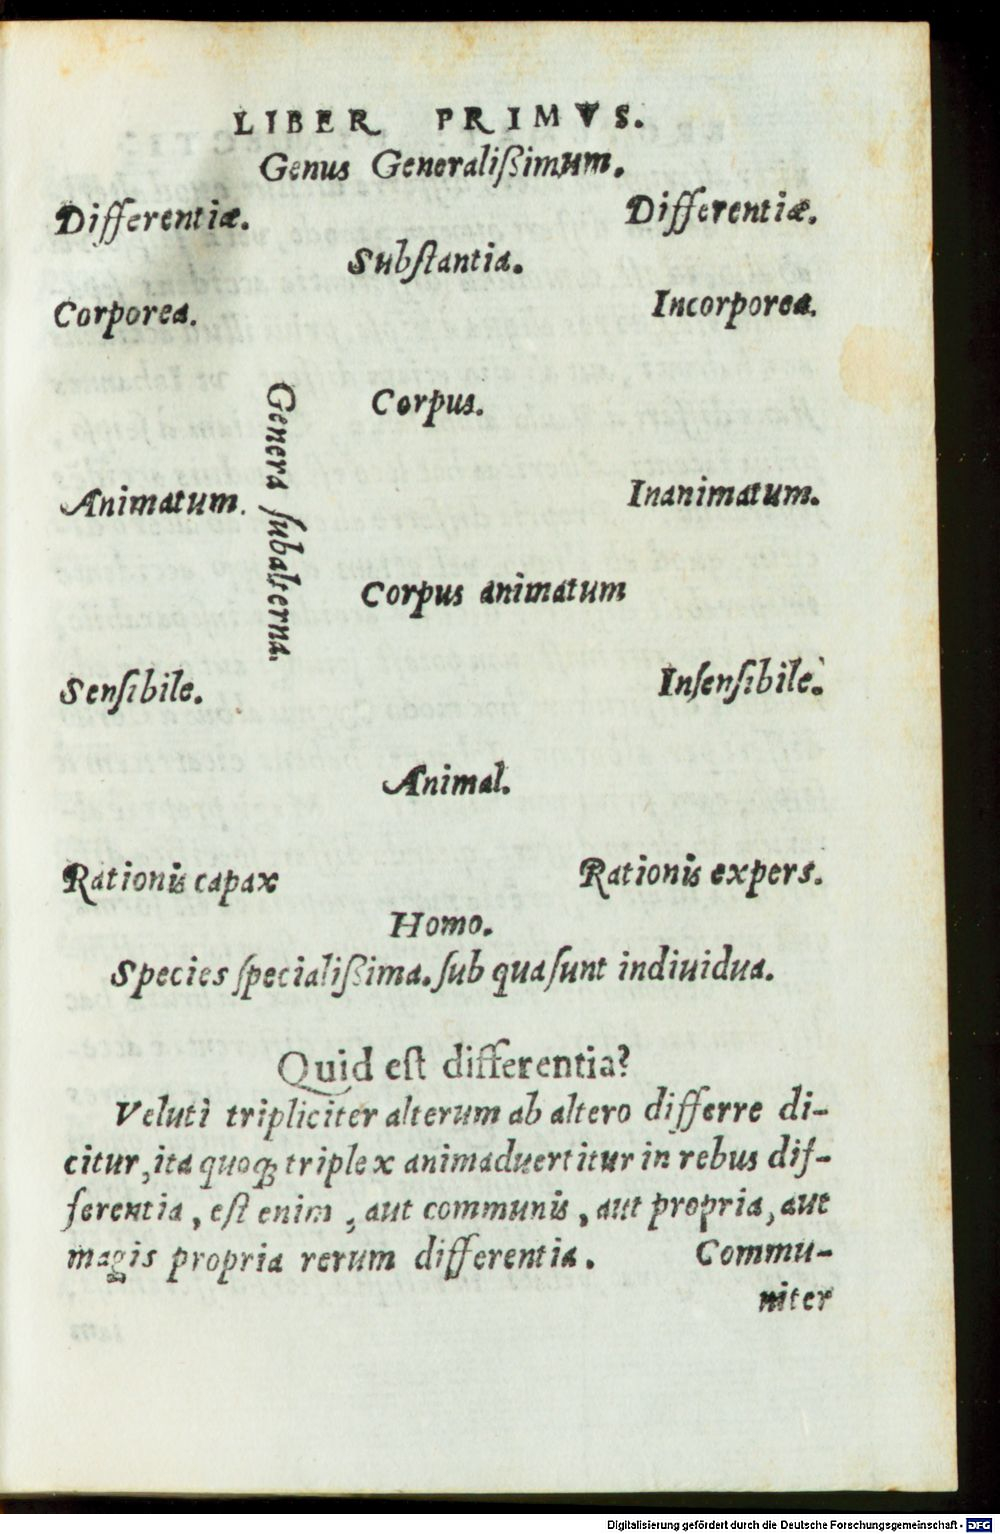 LIBER PRIMVS.
Genus Generalißimum.
Differentiæ. Differentiæ.
Substantia.
Corporea. Incorporea.
Genera subalterna.
Corpus.
Animatum. Inanimatum.
Corpus animatum
Sensibile. Insensibile.
Animal.
Rationis capax Rationis expers.
Homo.
Species specialißima. sub qua sunt indiuidua.
Quid est differentia?
Veluti tripliciter alterum ab altero differre di-
citur, ita quoq; triplex animaduertitur in rebus dif-
ferentia, est enim, aut communis, aut propria, aut
magis propria rerum differentia. Commu-
niter
Digitalisierung gefördert durch die Deutsche Forschungsgemeinschaft - DFG